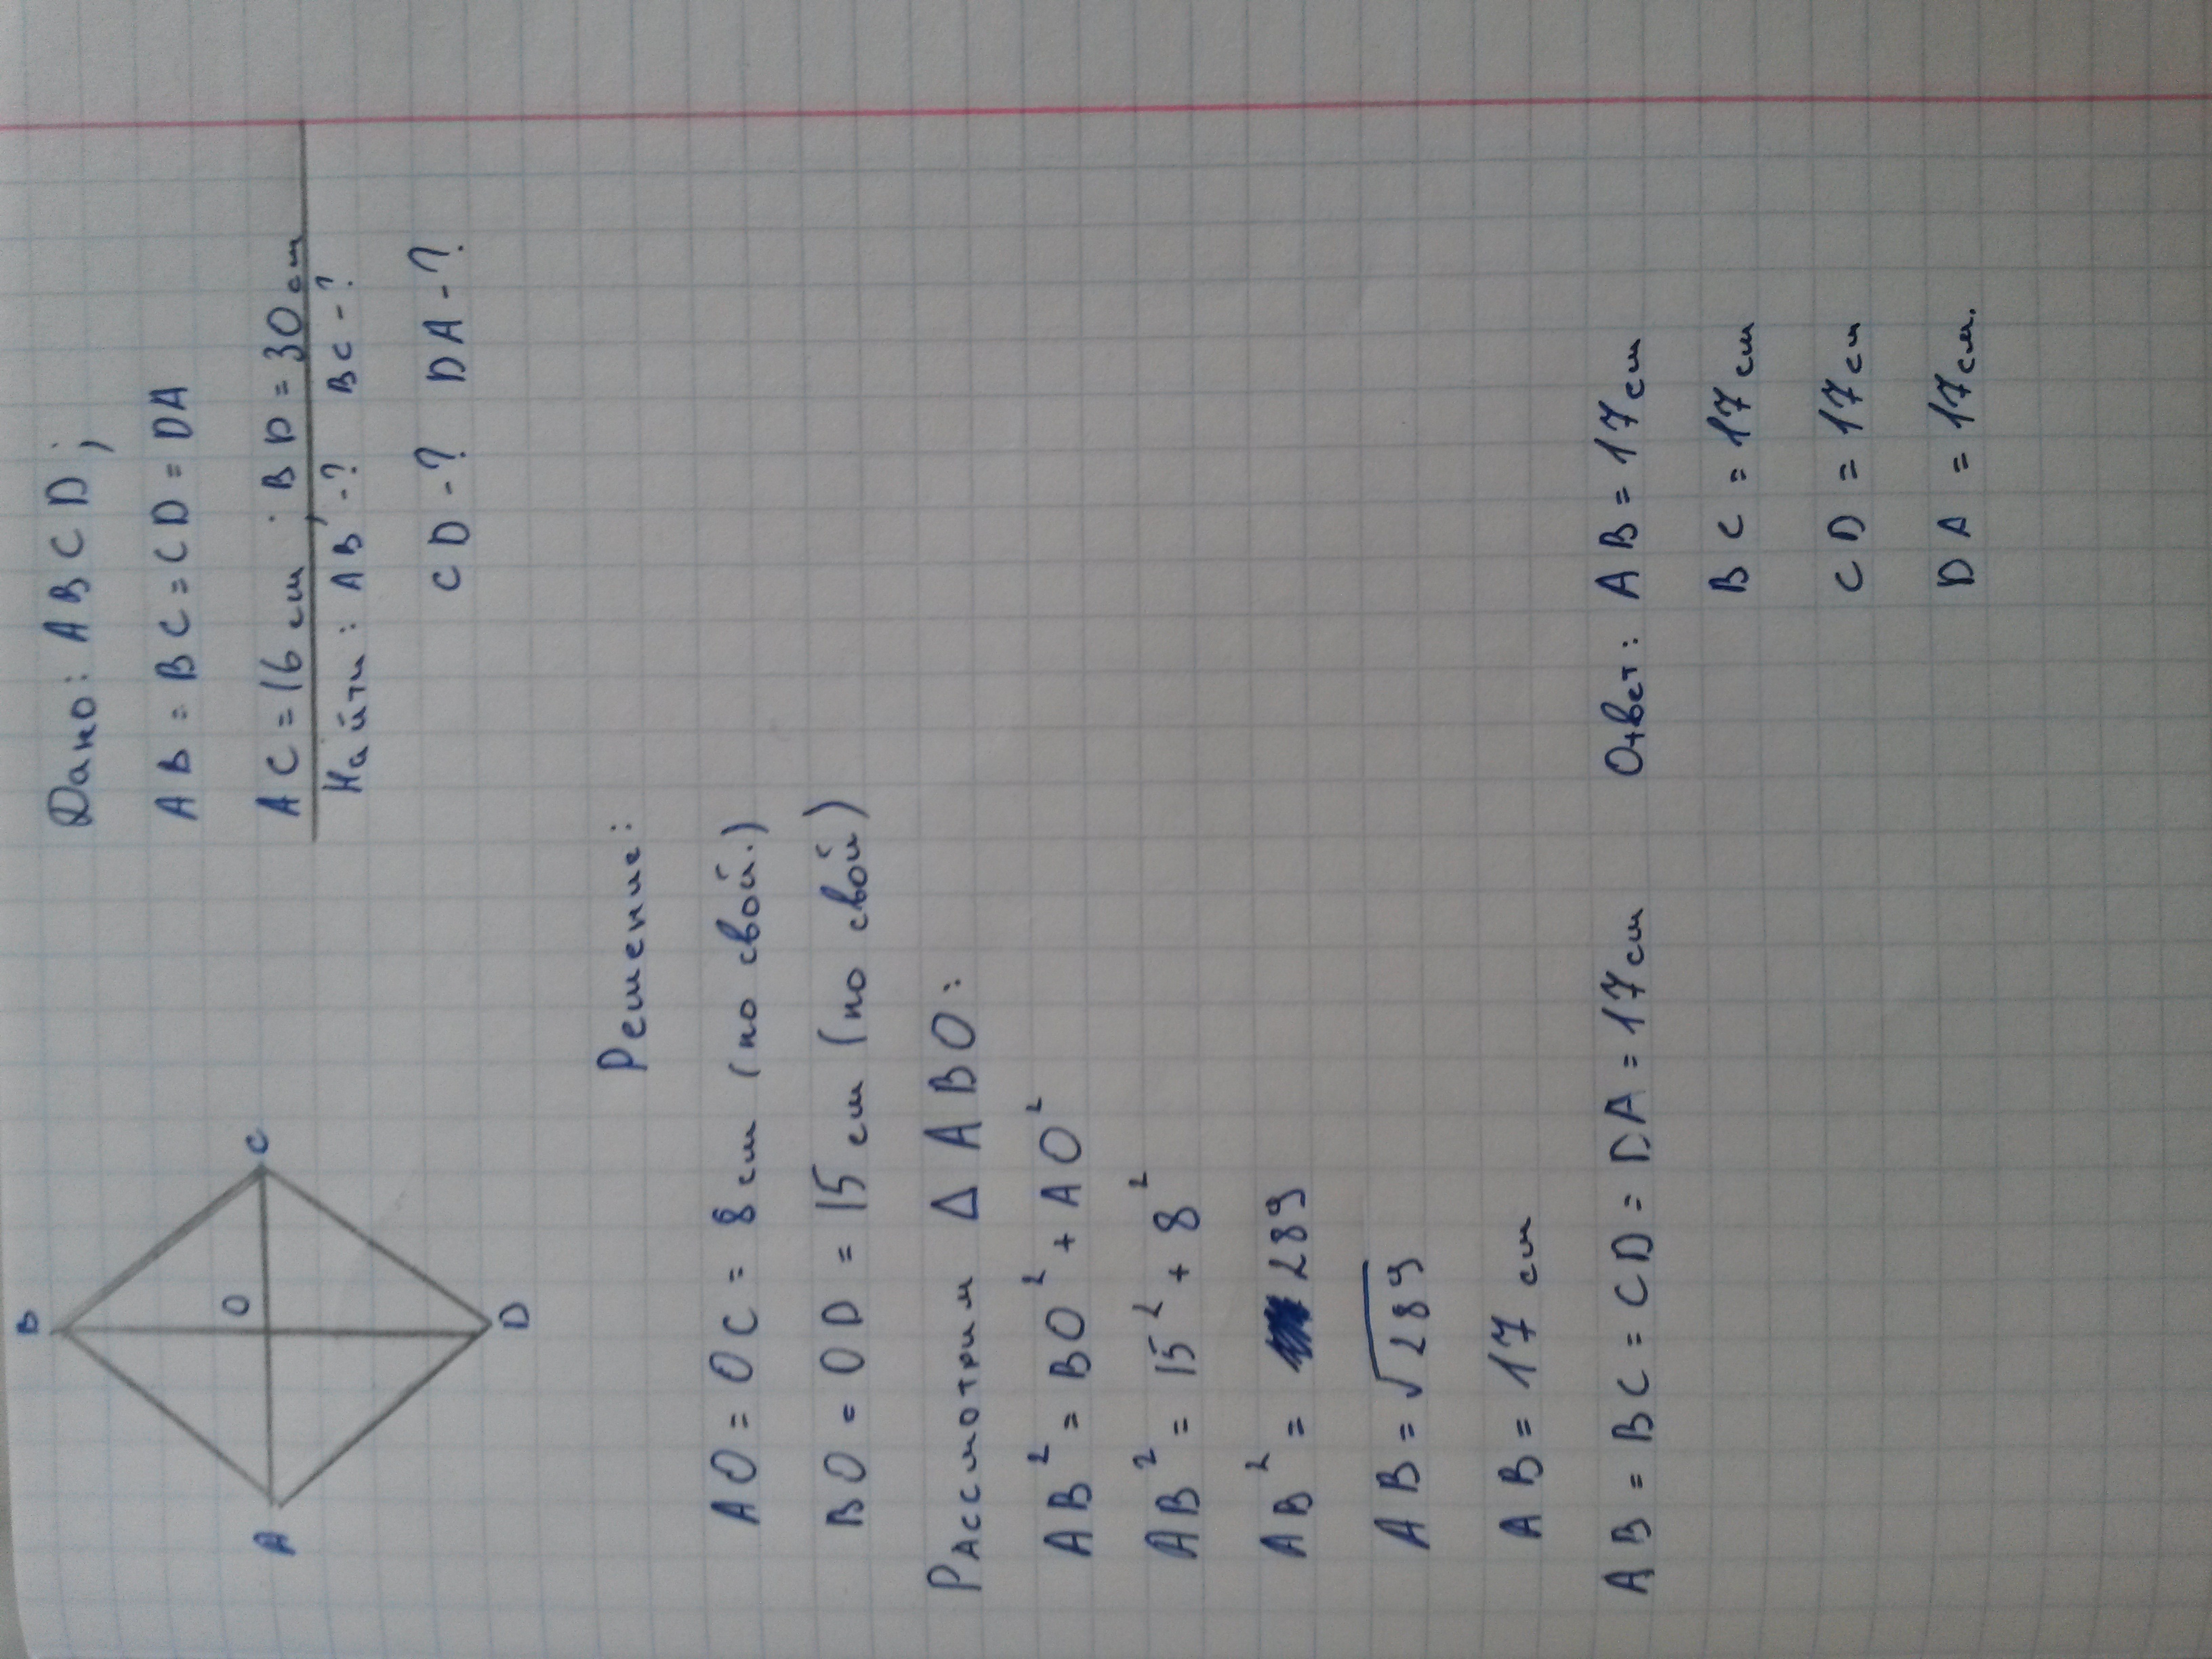 B
O
C
A
D
Дано: ABCD;
AB = BC = CD = DA
AC = 16 см ; BD = 30 см
Найти: AB - ? BC - ?
CD - ? DA - ?
Решение:
AO = OC = 8 см (по свой.)
BO = OD = 15 см (по свой)
Рассмотрим Δ ABO:
AB² = BO² + AO²
AB² = 15² + 8²
AB² = 289
AB = √289
AB = 17 см
AB = BC = CD = DA = 17 см
Ответ: AB = 17 см
BC = 17 см
CD = 17 см
DA = 17 см.